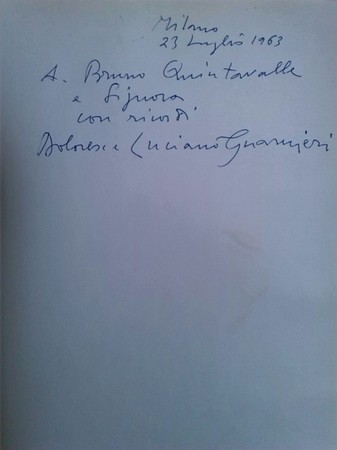 Milano
23 Luglio 1963
A. Bruno Quintavalle
e Signora
con ricordi
Dolores e Luciano Guarnieri